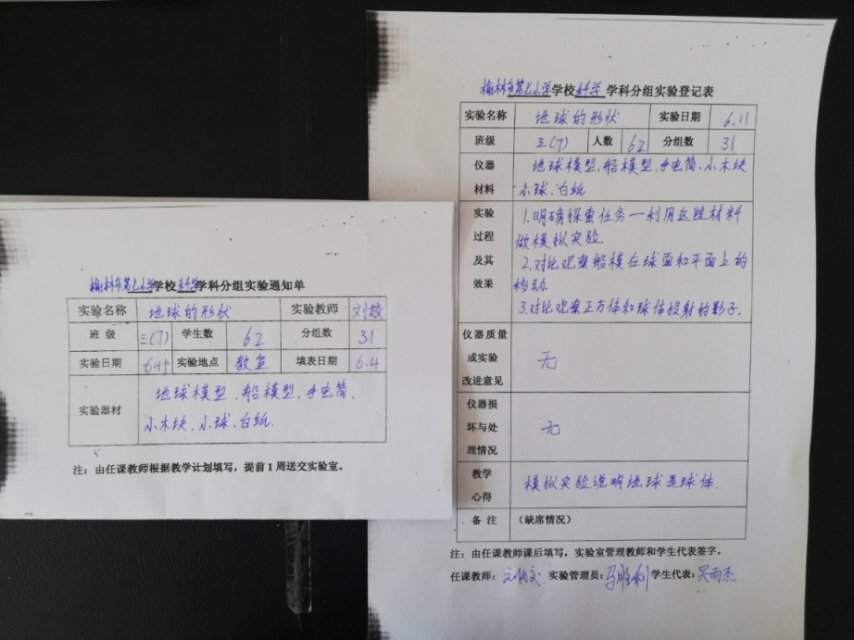 榆林市第七小学学校科学学科分组实验通知单
实验名称 地球的形状 实验教师 刘姣
班 级 三(7) 学生数 62 分组数 31
实验日期 实验地点 教室 填表日期 6.4
实验器材 地球模型、船模型、手电筒、
小木块、小球、白纸.
注：由任课教师根据教学计划填写，提前1周送交实验室。
榆林市第七小学学校科学 学科分组实验登记表
实验名称 地球的形状 实验日期 6.11
班级 三(7) 人数 62 分组数 31
仪器材料 地球模型、船模型、手电筒、小木块
小球、白纸
实验过程及其效果 1.明确探索任务—利用这些材料
做模拟实验.
2.对比观察船模在球面和平面上的
移动.
3.对比观察正方体和球体投射的影子.
仪器质量或实验改进意见 无
仪器损坏与处理情况 无
教学心得 模拟实验说明地球是球体.
备 注 （缺席情况）
注：由任课教师课后填写，实验室管理教师和学生代表签字。
任课教师：刘姣 实验管理员：马胜利 学生代表：吴雨杰